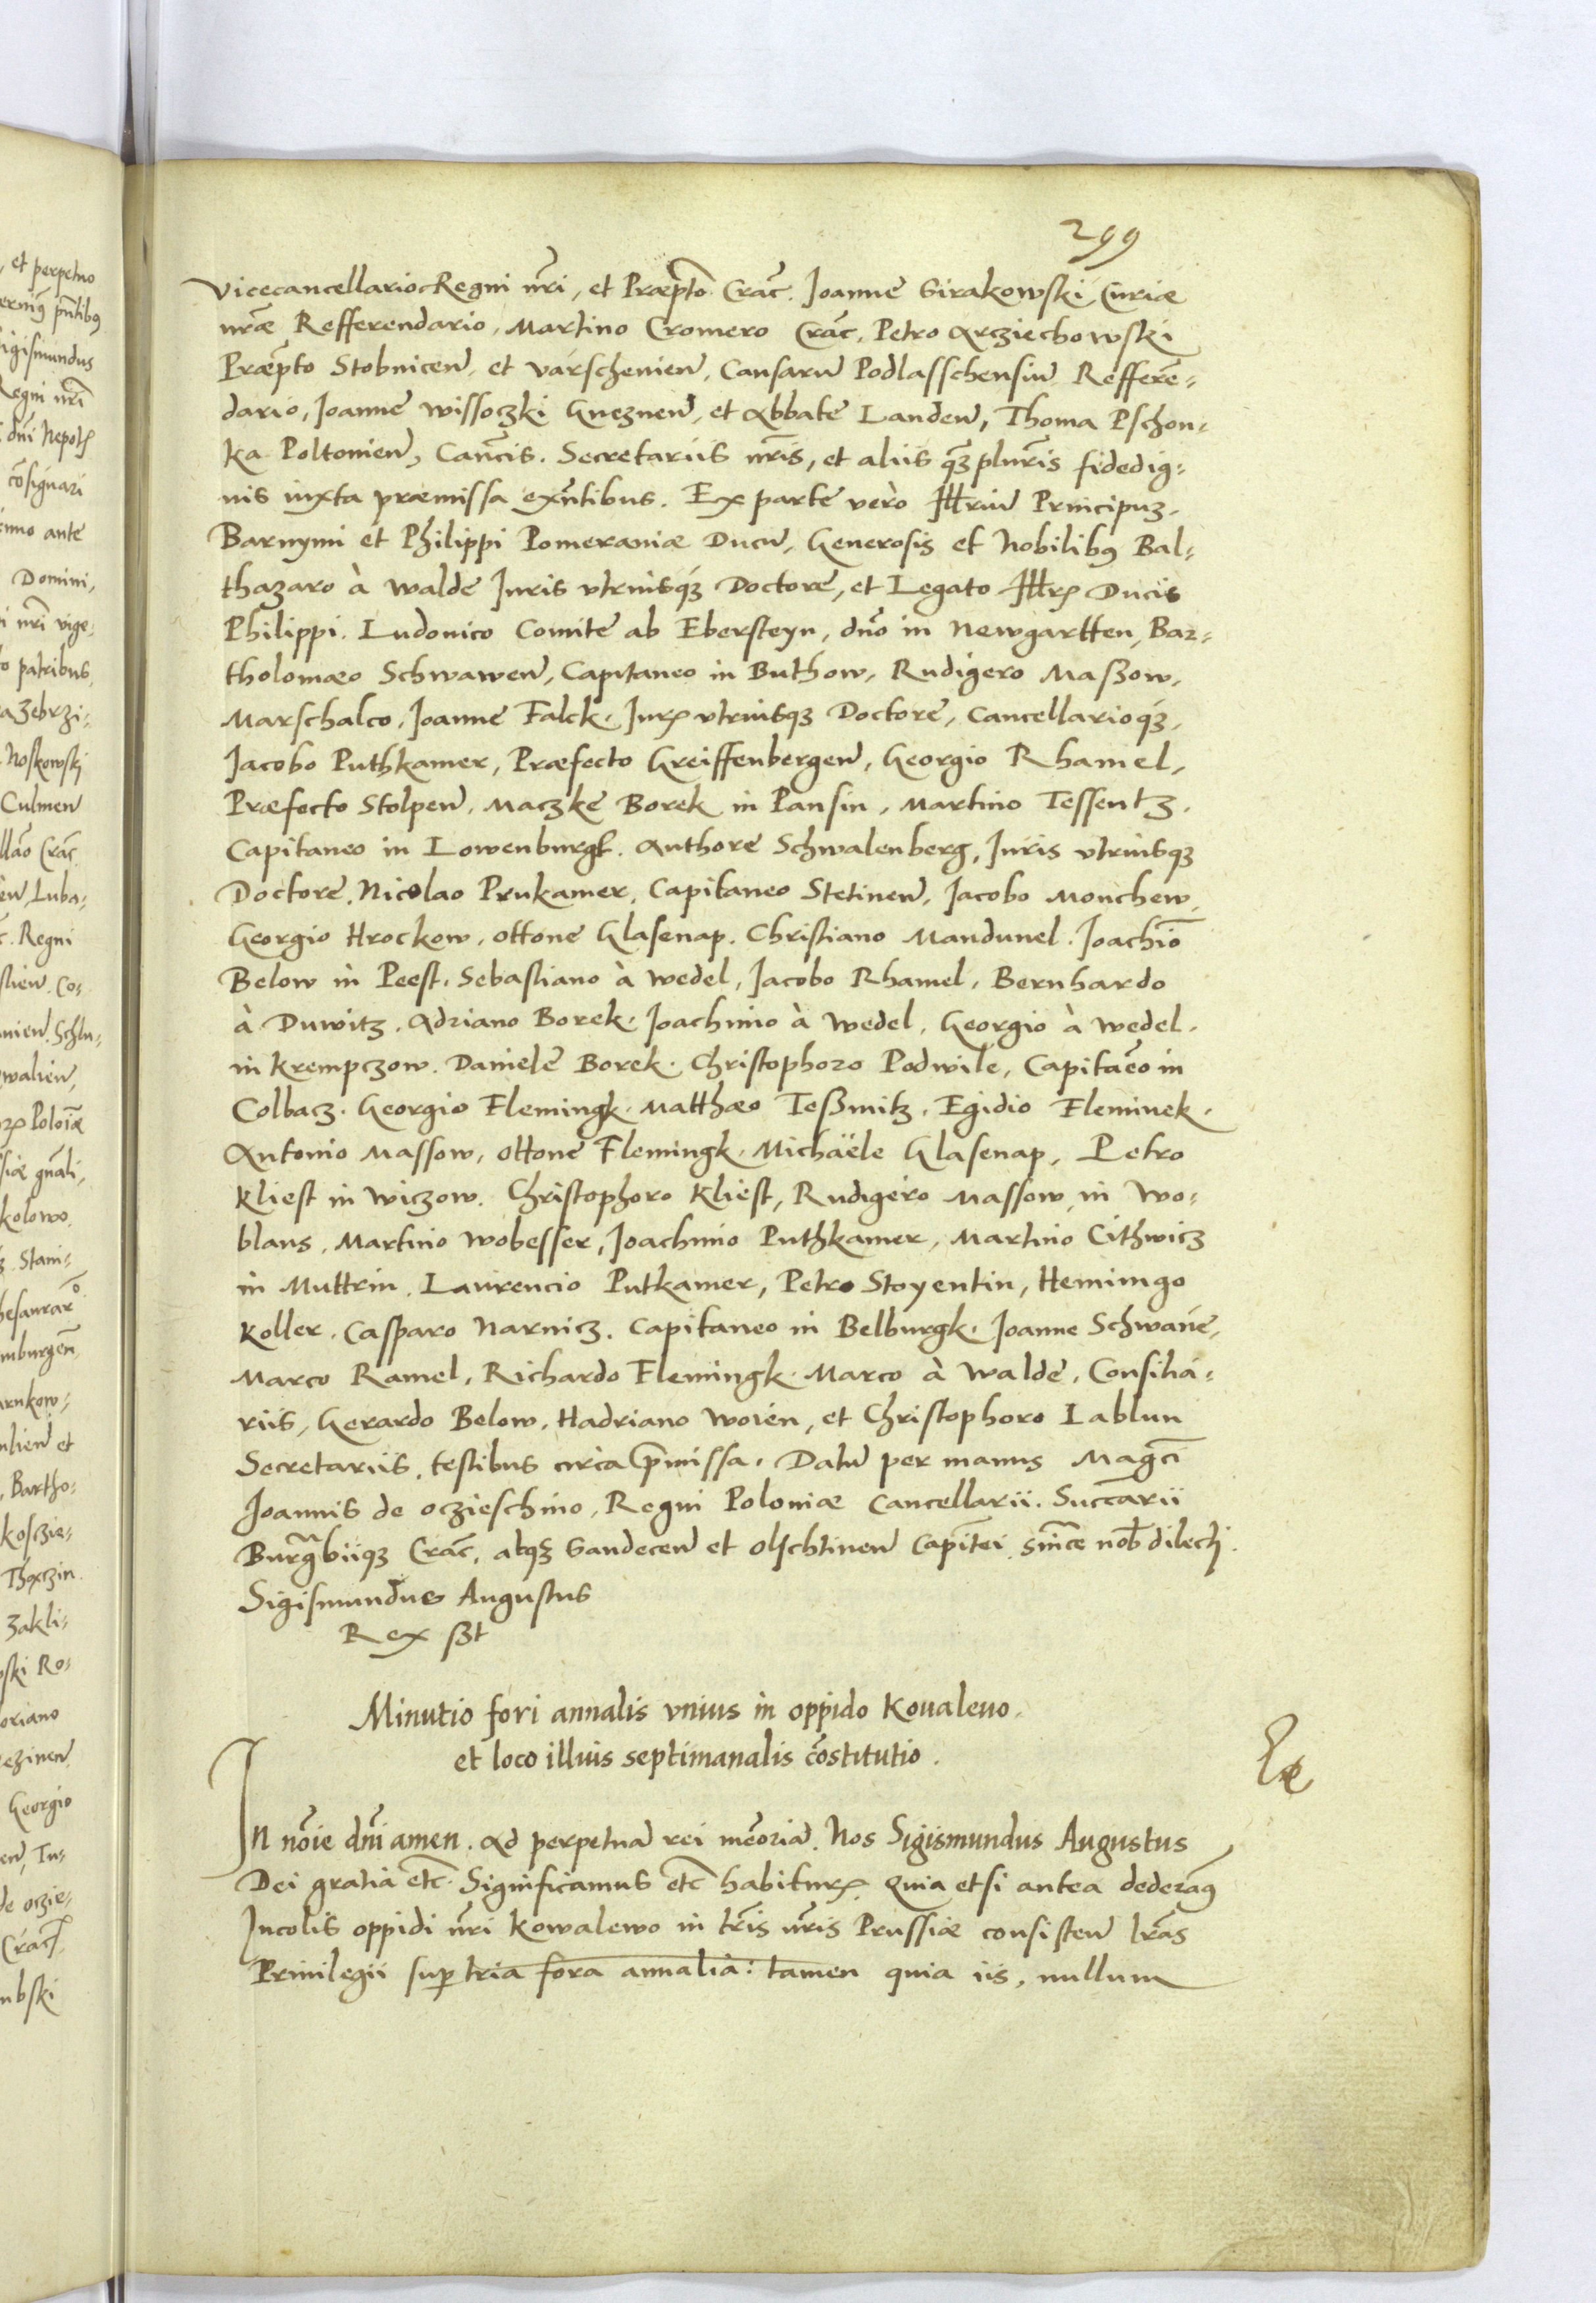 299
Vicecancellario Regni nr̃i, et Præp̃to Crac̃. Joanne Sirakowski Curiæ
nr̃æ Refferendario, Martino Cromero Crac̃, Petro Arcziechowski
Præp̃to Stobnicen̄, et varschenien̄, Causarū Podlasschensiū Refferē-
dario, Joanne Wissoczki Gneznen̄, et Abbate Landen̄, Thoma Pschon-
ka Poltonien̄, Can̄cis. Secretariis nr̃is, et aliis q̃zplur̃is fidedig-
nis iuxta præmissa exñtibus. Ex parte verò Illriū Principuz.
Barnymi et Philippi Pomeraniæ Ducū, Generosis et Nobilibꝰ Bal-
thazaro à Walde Juris vtriusqz Doctore, et Legato Illrꝭ Ducis
Philippi. Ludouico Comite ab Ebersteyn, dño in Newgartten, Bar-
tholomæo Schwawen̄, Capitaneo in Buthow, Rudigero Maßow,
Marschalco, Joanne Falck. Jurꝭ vtriusqz Doctore, Cancellarioqz,
Jacobo Puthkamer, Præfecto Greiffenbergen̄, Georgio Rhamel,
Præfecto Stolpen̄, Maczke Borek in Pansin, Martino Tessentz.
Capitaneo in Lowenburgk. Anthore Schwalenberg, Juris vtriusqz
Doctore, Nicolao Prukamer, Capitaneo Stetinen̄, Jacobo Monchew,
Georgio Hrockow, Ottone Glasenap. Christiano Mandunel. Joachīo
Below in Peest, Sebastiano à Wedel, Jacobo Rhamel, Bernhardo
à Duwitz. Adriano Borek. Joachimo à Wedel, Georgio à Wedel.
in Krempczow. Daniele Borek. Christophoro Podwile, Capitāeo in
Colbacz. Georgio Flemingk. Matthæo Teßmitz. Egidio Fleminek.
Antonio Massow, Ottone Flemingk. Michaële Glasenap, Petro
Kliest in Wiczow. Christophoro Kliest, Rudigero Massow in Wo-
blans, Martino Wobesser, Joachimo Puthkamer, Martino Cithwicz
in Muttrin. Laurencio Putkamer, Petro Stoyentin, Hemimgo
Koller. Casparo Narnicz. Capitaneo in Belburgk. Joanne Schwaue,
Marco Ramel, Richardo Flemingk. Marco à Walde, Consilia-
riis, Gerardo Below, Hadriano Woien, et Christophoro Lablun
Secretariis, testibus circa p̄missa. Datū per manus Mag̃ci
Joannis de Oczieschino, Regni Poloniæ Cancellarii. Succarii
Burg̃biiqz Crac̃, atqz Sandecen̄ et Olschtinen̄ Capit̃ei, sin̄ce nob̃ dilecti.
Sigismundus Augustus
Rex sst
Minutio fori annalis vnius in oppido Koualeuo.
et loco illius septimanalis cōstitutio.
In nōie dñi amen. Ad perpetuā rei mēoriā. Nos Sigismundus Augustus
Dei gratia etc̃. Significamus etc̃ habiturꝭ Quia etsi antea dederāꝰ
Incolis oppidi nr̃i Kowalewo in tr̃is nr̃is Prussiæ consisten̄ lr̃as
Priuilegii suꝑ tria fora annalia: tamen quia iis, nullum